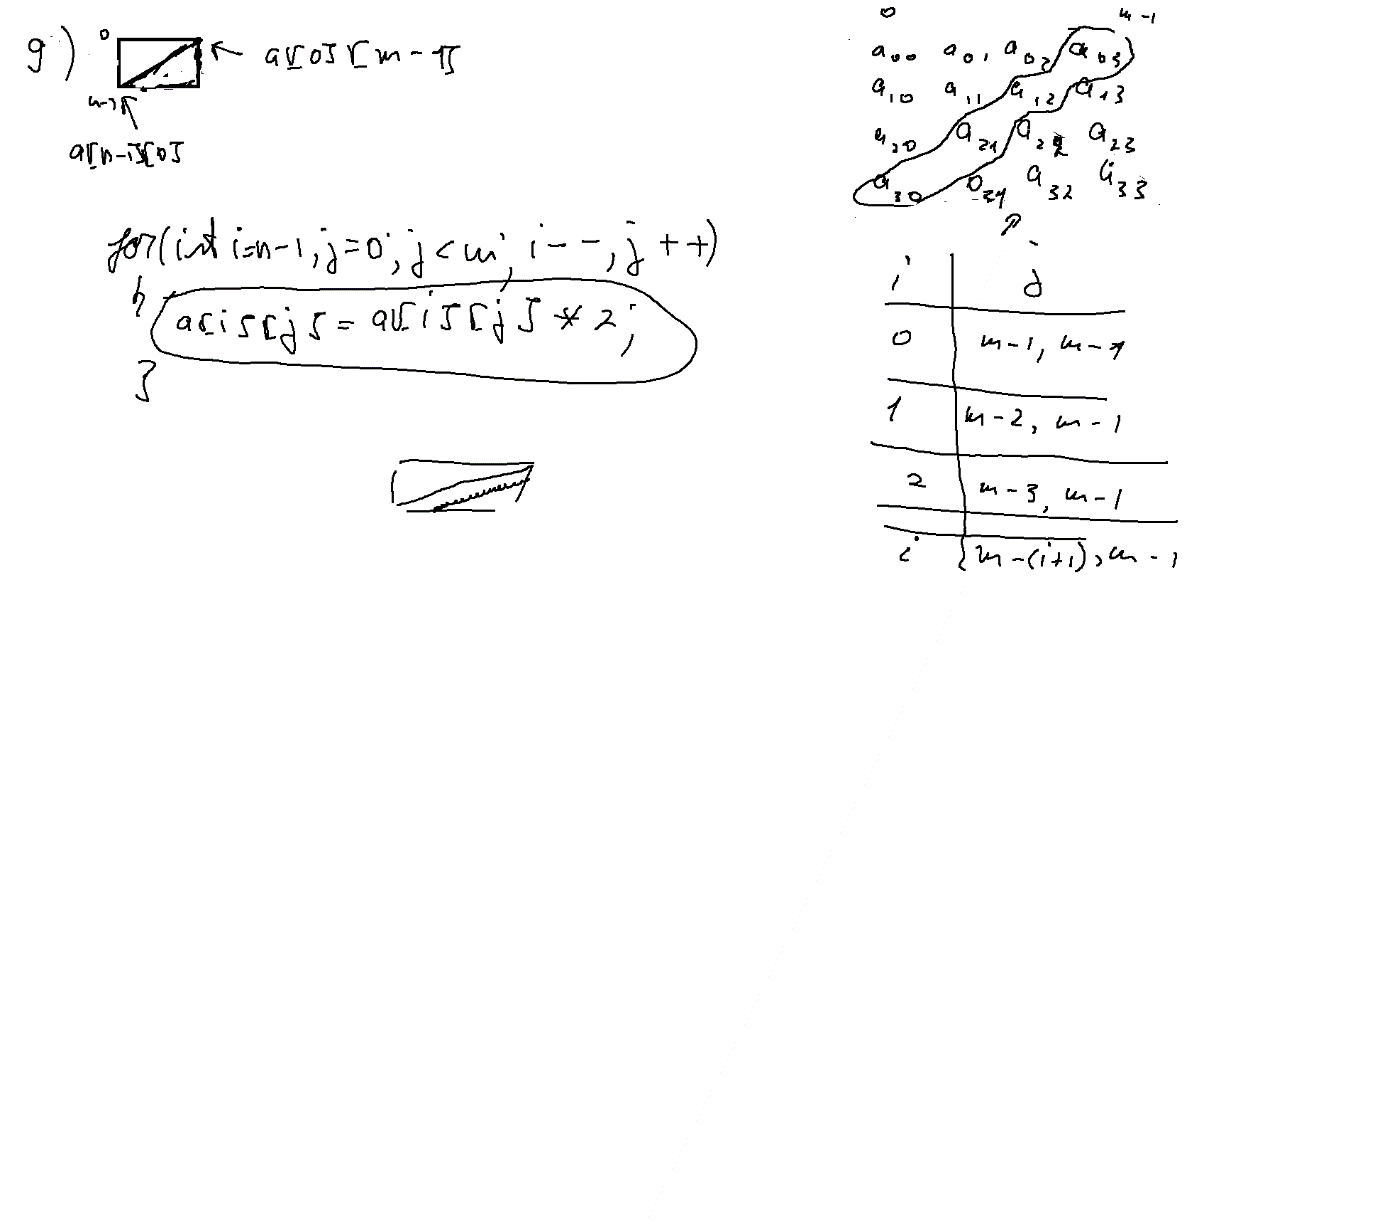 g)
0
a[0][m-1]
n-1
a[n-1][0]
for(int i=n-1, j=0; j<m; i--, j++)
{
a[i][j] = a[i][j] * 2;
}
0 m-1
a00 a01 a02 a03
a10 a11 a12 a13
a20 a21 a22 a23
a30 a31 a32 a33
i j
0 m-1, m-1
1 m-2, m-1
2 m-3, m-1
i m-(i+1), m-1